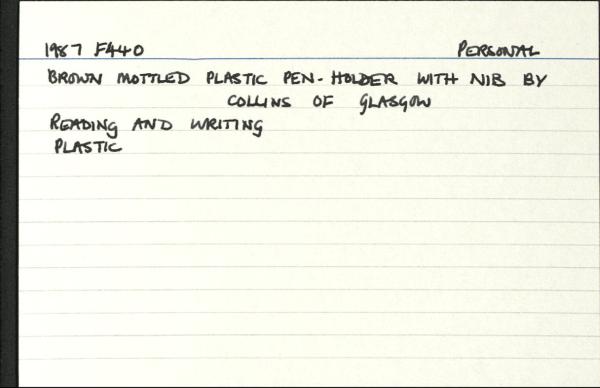 1987 F440 PERSONAL
BROWN MOTTLED PLASTIC PEN-HOLDER WITH NIB BY
COLLINS OF GLASGOW
READING AND WRITING
PLASTIC